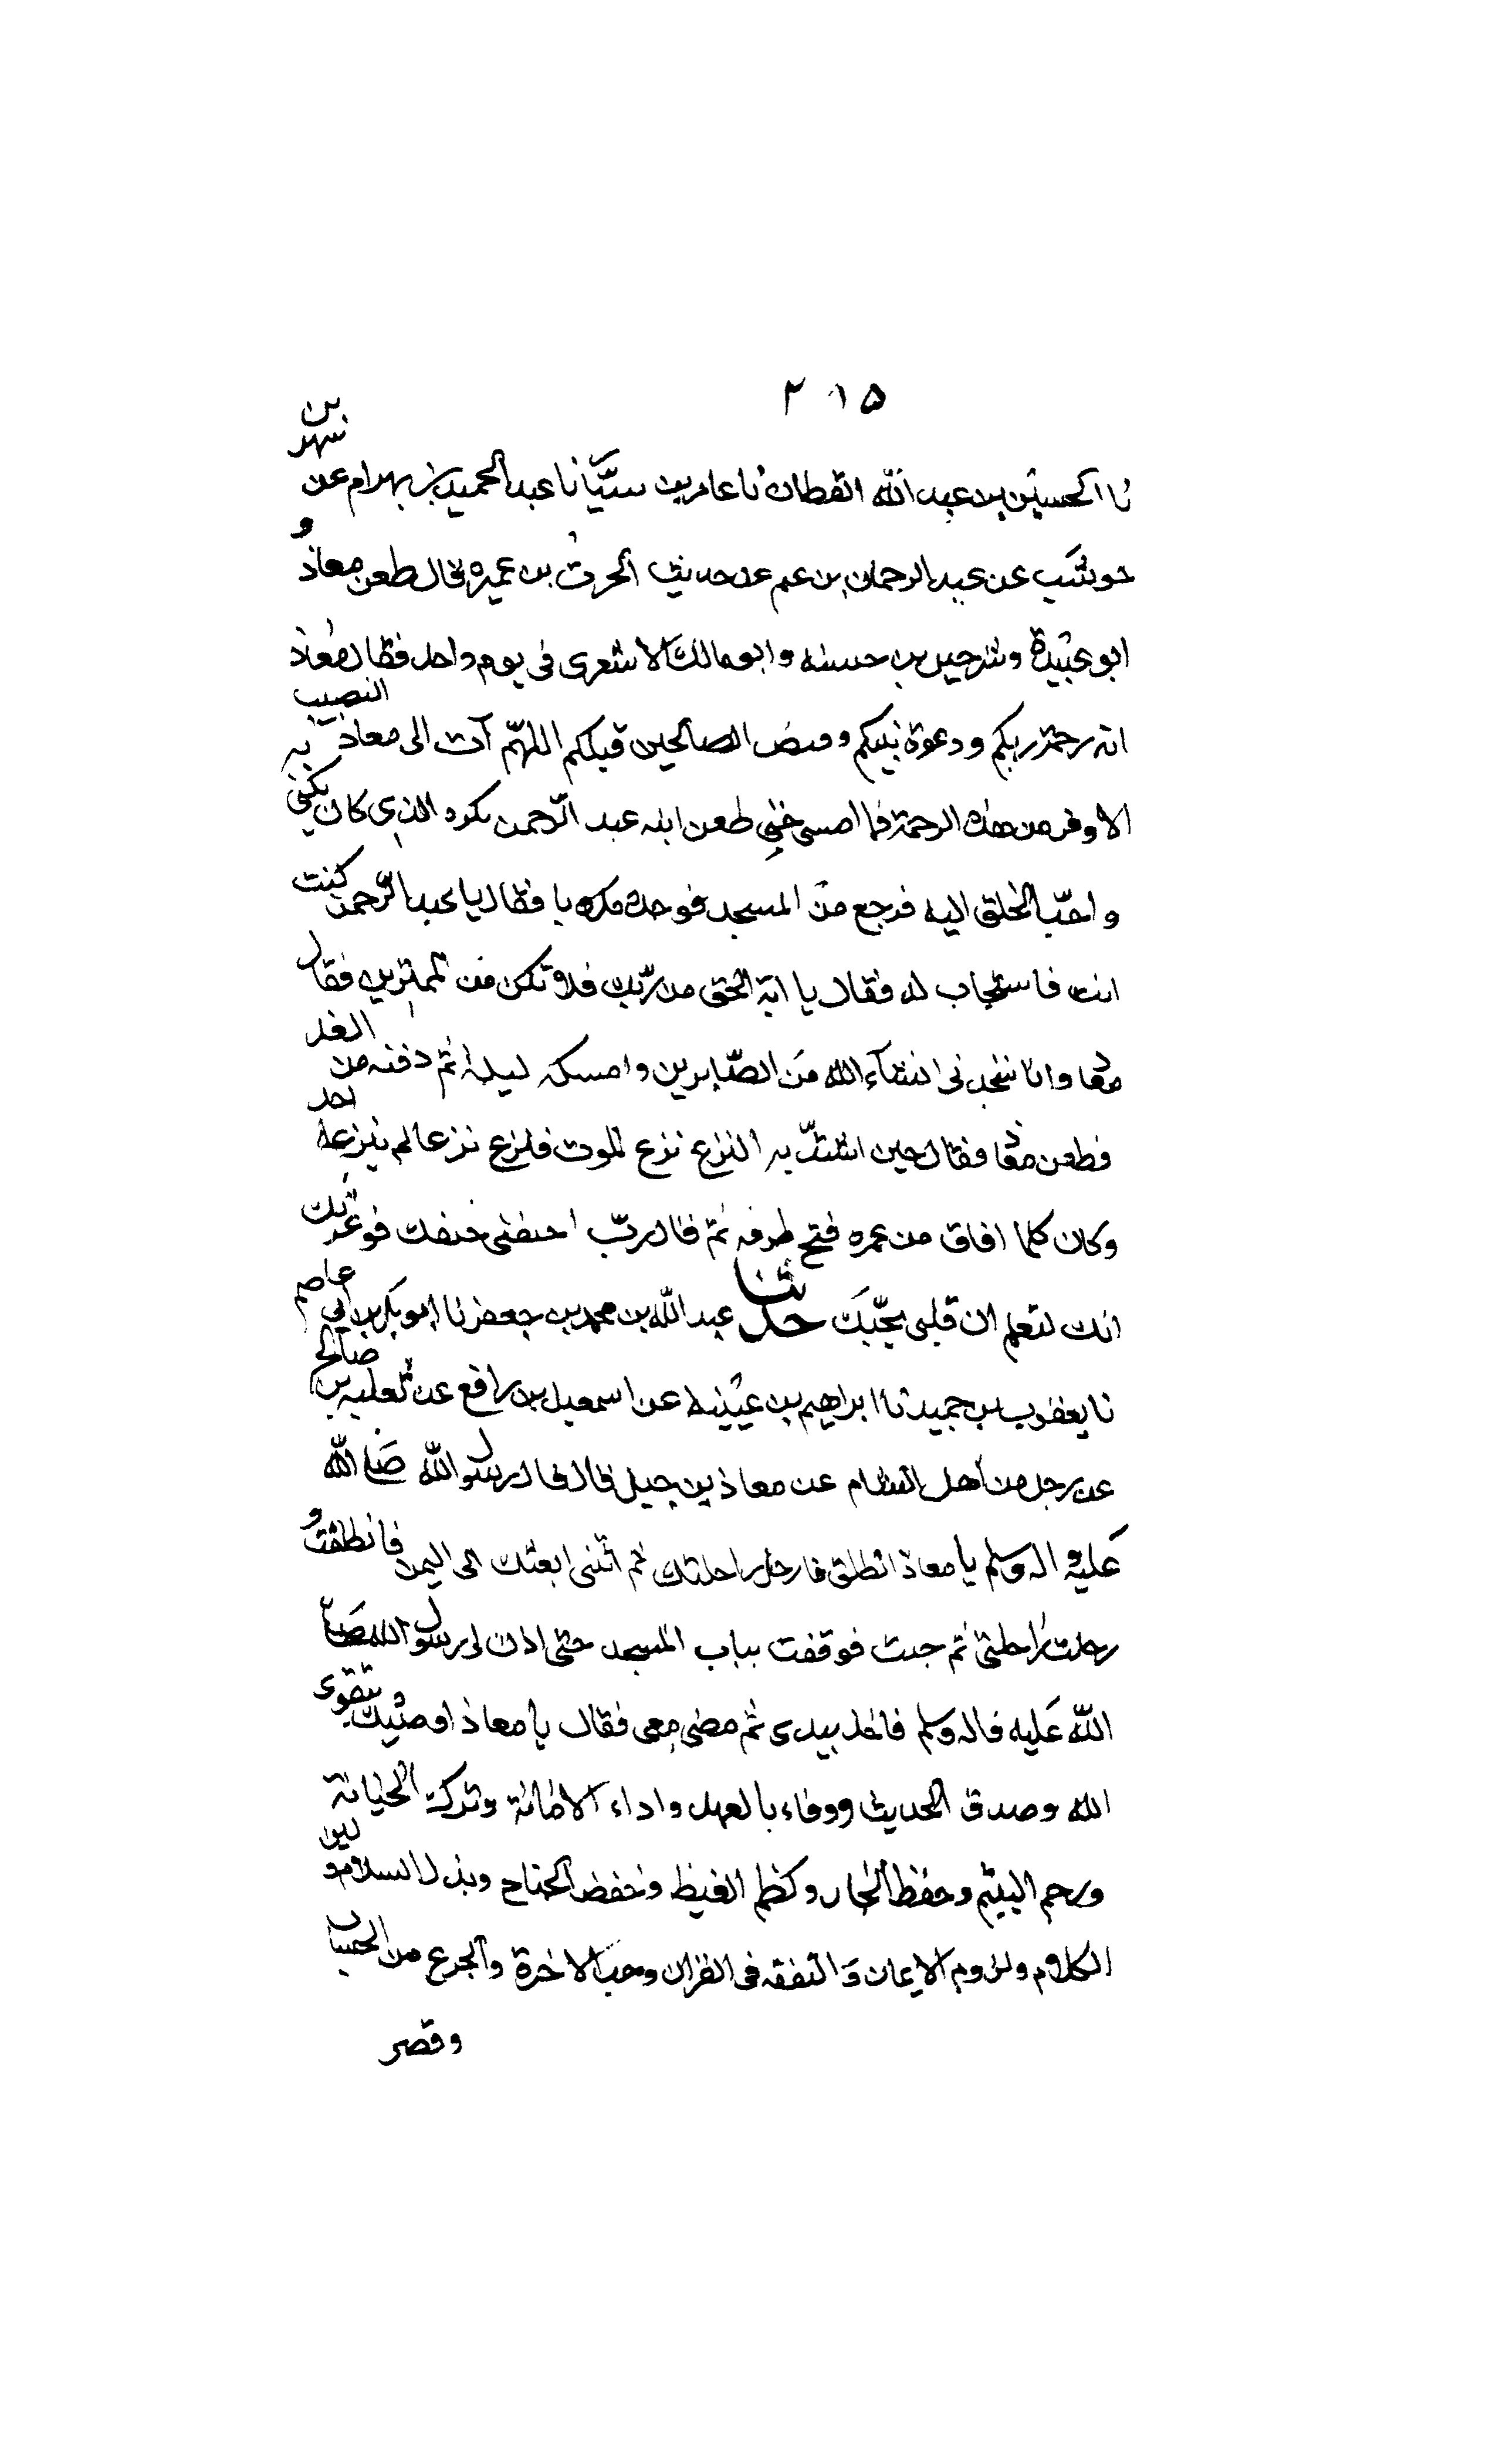 ٢١٥
نا الحسين بن عبد الله القطان نا عامر بن سيّار نا عبد الحميد بن بهرام عن شهر بن
حوشب عن عبد الرحمان بن غنم عن حديث الحرث بن عميره قال طعن معاذ و
ابو عبيدة وشرحبيل بن حسنه وابو مالك الاشعرى فى يوم واحد فقال معاذ
انه رحمة ربكم ودعوة نبيكم وقبض الصالحين قبلكم اللهمّ آت الى معاذ النصيب
الاوفر من هذه الرحمة فما امسى حتى طعن ابنه عبد الرّحمن بكره الذى كان يكنى به
واحبّ الخلق اليه فرجع من المسجد فوجده مكروبا فقال يا عبد الرّحمن كيف
انت فاستجاب له فقال يا ابة الحق من ربّك فلا تكن من الممترين فقال
معاذ وانا ستجدنى انشآء الله من الصّابرين وامسكه ليله ثم دفنه من الغد
فطعن معاذ فقال حين اشتدّ به النزع نزع الموت فنزع نزعا لم ينزعه احد
وكان كلما افاق من غمره فتح طرفه ثمّ قال ربّ اخنقنى خنقك فوعزتك
انك لتعلم ان قلبى يحبّك حدثنا عبد الله بن محمد بن جعفر نا ابو بكر بن ابى عاصم
نا يعقوب بن حميد نا ابراهيم بن عيينه عن اسمعيل بن رافع عن ثعلبه بن صالح
عن رجل من اهل الشام عن معاذ بن جبل قال قال رسول الله صَلى الله
عَليه واله وسلم يا معاذ انطلق فارحل راحلتك ثم ائتنى ابعثك الى اليمن فانطلقت و
رحلت راحلتى ثم جئت فوقفت بباب المسجد حتى اذن لى رسول الله صَلى
الله عَليه واله وسلم فاخذ بيدى ثم مضى معى فقال يا معاذ اوصيك بتقوى
الله وصدق الحديث ووفاء بالعهد واداء الامانة وترك الخيانة
ورحم اليتيم وحفظ الجار وكظم الغيظ وخفض الجناح وبذل السلام ولين
الكلام ولزوم الايمان وَالتفقه فى القران وحب الاخرة والجزع من الحساب
وقصر